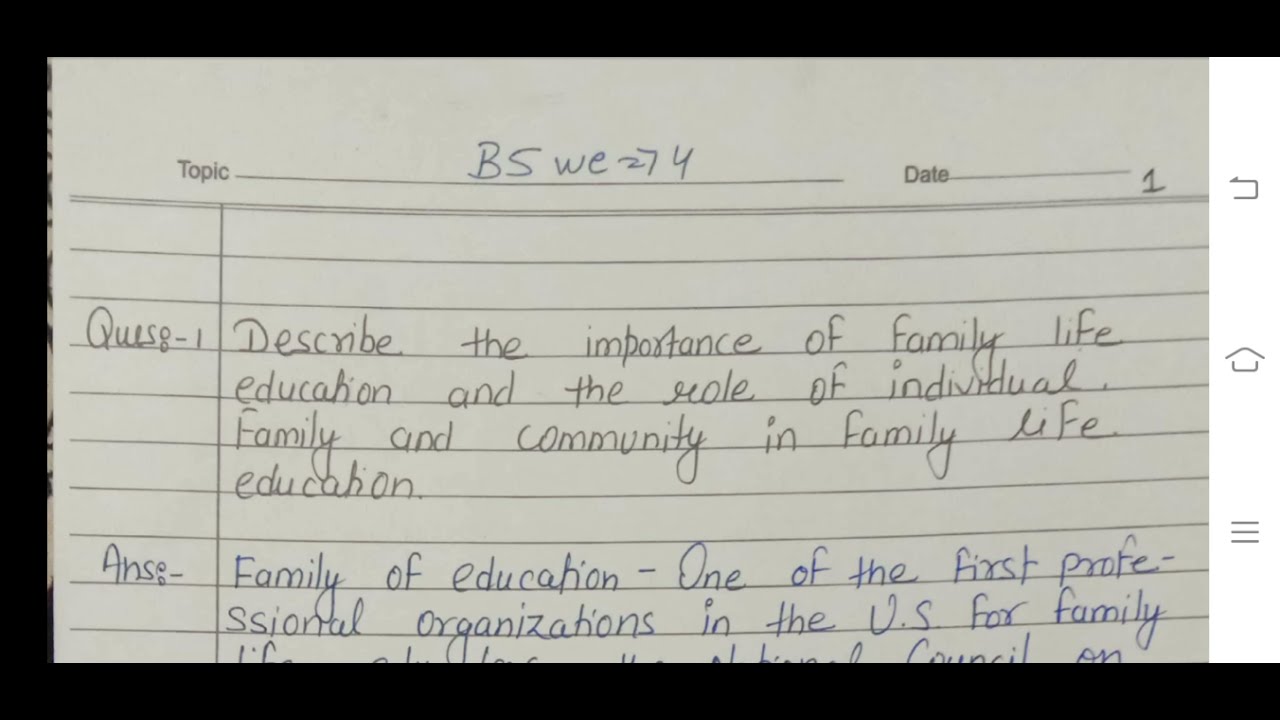 Topic BSWE=74 Date 1
Ques:-1 Describe the importance of family life
education and the role of individual.
Family and community in family life
education.
Ans:- Family of education - One of the first profe-
ssional organizations in the U.S. for family
Council on